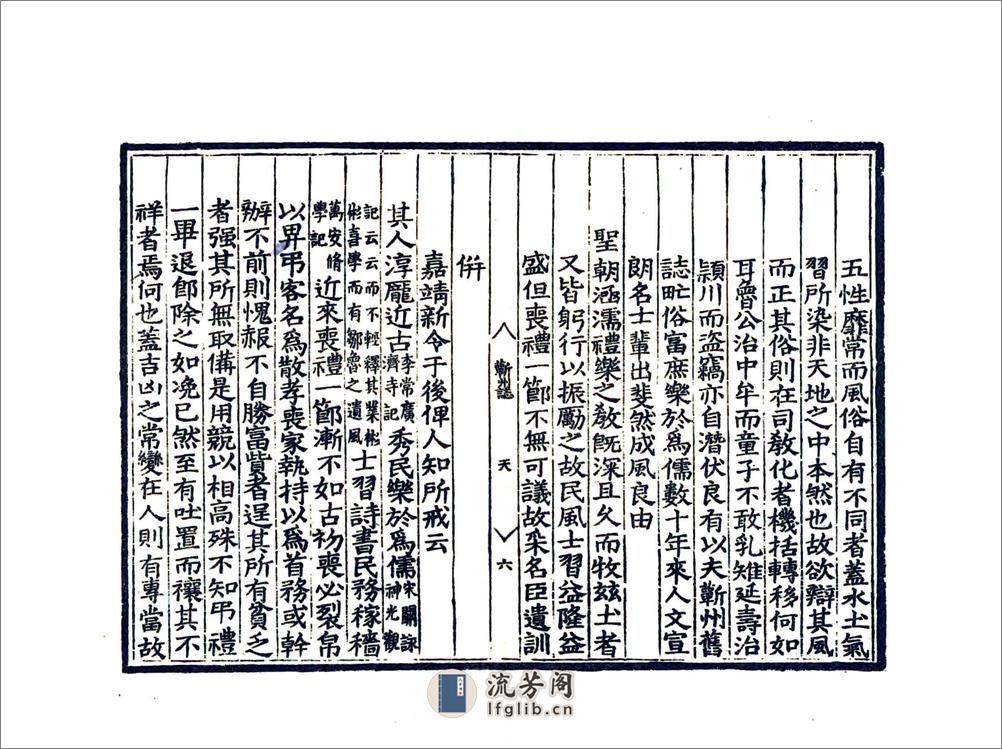 五性靡常而風俗自有不同者蓋水土氣
習所染非天地之中本然也故欲辯其風
而正其俗則在司敎化者機括轉移何如
耳魯公治中牟而童子不敢乳雉延壽治
潁川而盜竊亦自潜伏良有以夫蘄州舊
誌甿俗富庶樂於爲儒數十年來人文宣
朗名士輩出斐然成風良由
聖朝涵濡禮樂之敎旣深且久而牧玆土者
又皆躬行以振勵之故民風士習益隆益
盛但喪禮一節不無可議故采名臣遺訓
蘄州誌 天 六
倂
嘉靖新令于後俾人知所戒云
其人淳厖近古李常廣濟寺記秀民樂於爲儒宋關詠神光觀
記云云而不輕釋其業彬彬喜學而有鄒魯之遺風士習詩書民務稼穡
萬安脩學記近來喪禮一節漸不如古初喪必裂帛
以畀弔客名爲散孝喪家執持以爲首務或幹
辦不前則愧赧不自勝富貲者逞其所有貧乏
者强其所無取備是用競以相高殊不知弔禮
一畢退卽除之如浼已然至有吐置而禳其不
祥者焉何也蓋吉凶之常變在人則有專當故
流芳阁
lfglib.cn